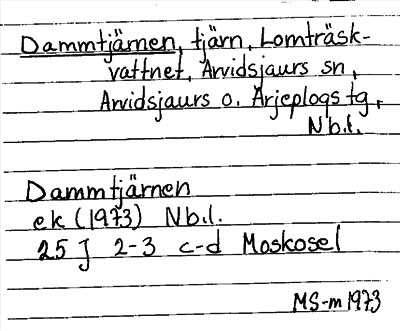 Dammtjärnen, tjärn, Lomträsk-
vattnet, Arvidsjaurs sn,
Arvidsjaurs o. Arjeplogs tg,
Nb.l.
Dammtjärnen
ek (1973) Nb.l.
25 J 2-3 c-d Moskosel
MS-m 1973